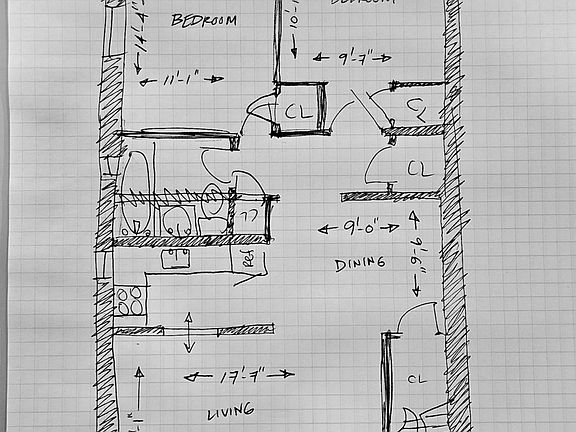 BEDROOM
BEDROOM
14'-4"
10'-1
9'-7"
11'-1"
CL
CL
CL
CL
9'-0"
9'-6"
DINING
Ref
17'-7"
CL
LIVING